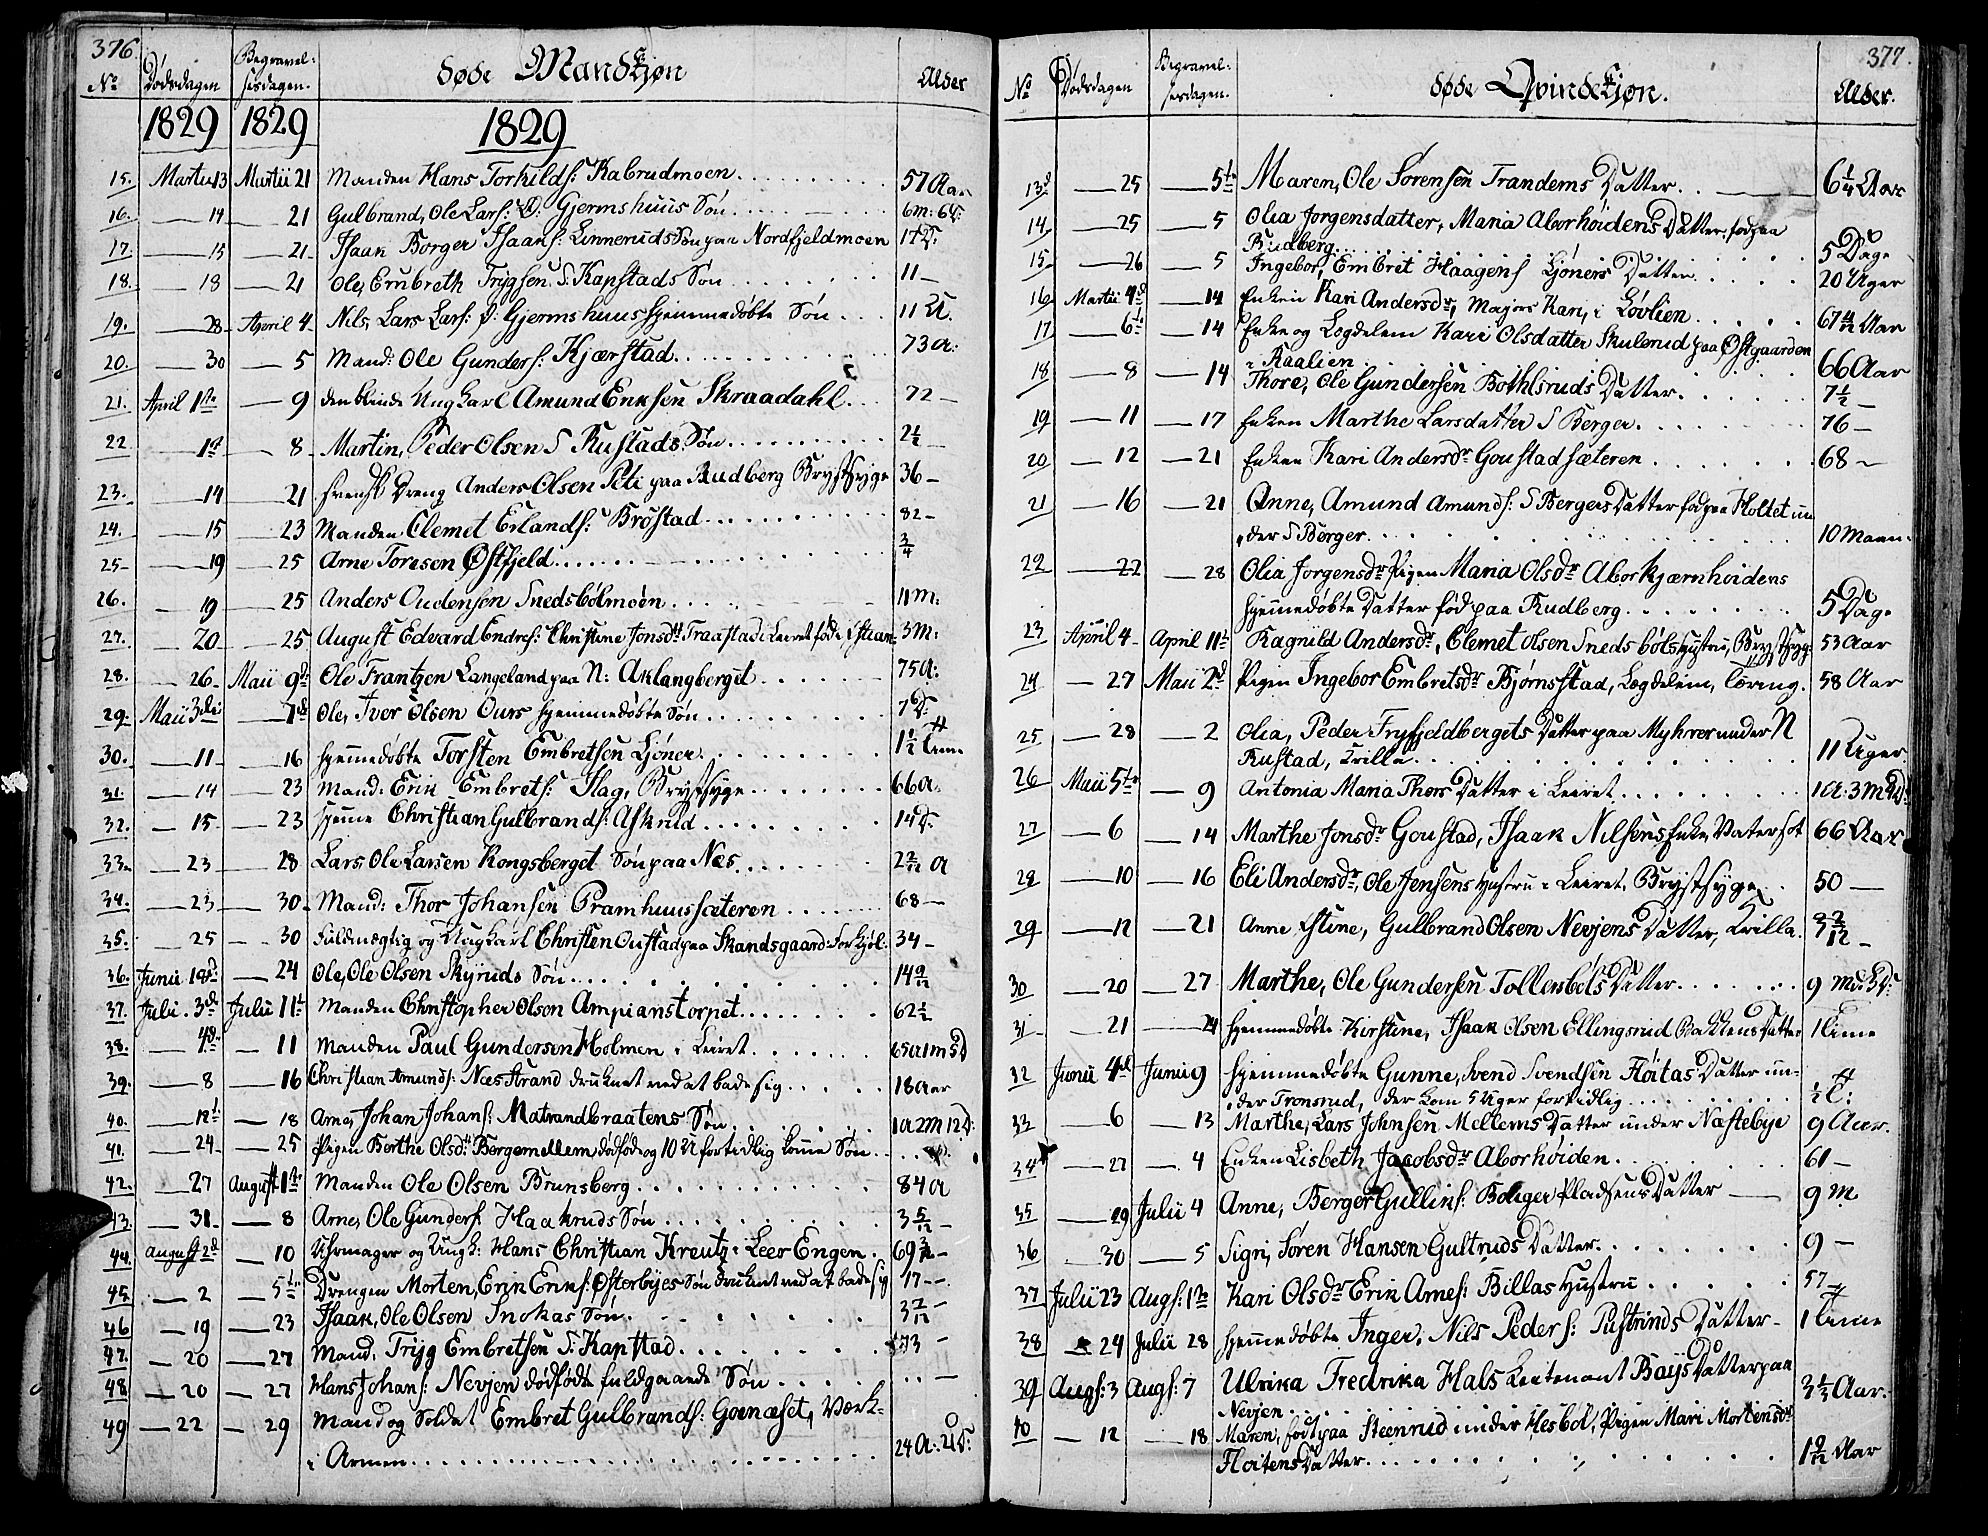 376.
No Dødsdagen Begravel: sesdagen. Døde Mandkjøn Alder
1829 1829 1829
15. Martii 13 Martii 21 Manden Hans Torkilds: Kabrudmoen 57 Aar
16. — 14 — 21 Gulbrand, Ole Lars: Gjermshuus Søn 6m: 6D:
17. — 15 — 21 Isaak Borger Isaaks: Linnerudssøn paa Nordfjeldmoen 17D:
18. — 18 — 21 Ole, Embreth Trygsen S: Kapstads Søn 11 —
19. — 28 April 4 Nils, Lars Lars: Gjermshuus hjemmedøbte Søn 11 U.
20. — 30 — 5 Mand: Ole Gunders: Kjærstad 73 A:
21. April 1ste — 9 den blinde Ungkarl Amund Eriksen Skraadahl 72 —
22 — 1st — 8 Martin, Peder Olsen S Rustads Søn 2½ —
23. — 14 — 21 svensk Dreng Anders Olsen Peti paa Rudberg Brystsyge 36 —
24. — 15 — 23 Manden Clemet Erlands: Brøstad 82 —
25 — 19 — 25 Arne Toresen Østfjeld ¾
26. — 19 — 25 Anders Oudensen Snedsbølmoen 11 m:
27. — 20 — 25 August Edvard Endres: Christine Jonsdtr Traastad i Leiret føde 3 M:
28. — 26 Maii 9de Ole Frantzen Langeland paa N: Aklangberget 75 A:
29. Maii 3die — 9de Ole, Iver Olsen Ours hjemmedøbte Søn 7 D:
30. — 11 — 16 hjemmedøbte Torsten Embretsen Ljøner 1½
31. — 14 — 23 Mand: Erik Embrets: Slag, Brystsyge 66 A.
32. — 15 — 23 hjemme Christian Gulbrands: Askrud 14 D.
33. — 23 — 28 Lars, Ole Larsen Kongsberget Søn paa Næs 2 2/12 A
34. — 23 — 30 Mand: Thor Johansen Pramhuussæteren 68 —
35. — 25 — 30 Fuldmægtig og Ungkarl Christen Oustad paa Skandsgaard: Forkjøl: 34 —
36. Junii 18d — 24 Ole, Ole Olsen Skyruds Søn 14 9/12
37. Julii 3de Julii 11t Manden Christopher Olsen Ampianstorpet 62½
38. — 4de — 11 Manden Paul Gundersen Holmen i Leiret 65 A 1 m 5 D
39. — 8 — 16 Christian Amunds: Næs Strand druknet ved at bade sig 18 Aar
40. — 12t — 18 Arne, Johan Johans: Matrandbraatens Søn 1 A 2 M 12 D:
41. — 24 — 25 Pigen Berthe Olsdtr Bergemellem dødføde og 10 U for tidlig komne Søn
42. — 27 August 1ste Manden Ole Olsen Brunsberg 84 A
43. — 31 — 8 Arne, Ole Gunders Haakruds Søn 3 5/12 —
44. August 2d — 10 Uhrmager og Ungk: Hans Christian Kreutz i Leer Engen 69 —
45. — 2 — 5te Drengen Morten, Erik Eriks: Østerbyes Søn druknet ved at bade sig 17 —
46 — 19 — 23 Isaak, Ole Olsen Snokas Søn 3 7/12 —
47. — 20 — 27 Mand: Tryg Embretsen S: Kapstad 73 —
48 — 20 — 27 Hans Johans: Nevjen dødfødte fuldgaaende Søn —
49 — 22 — 29 Mand og Soldat Embret Gulbrands: Gornæset, Værk
i Armen 24 A:
377.
No Dødsdagen Begravel: sesdagen. Døde Qvindekjøn. Alder.
13de — 25 — 5te Maren, Ole Sørensen Trandems Datter 6¼ Aar
14 — 25 — 5 Olia Jorgensdatter, Maria Aborhøidens Datter, fød paa
Rudberg 5 Dage
15 — 26 — 5 Ingebor, Embret Haagens Ljøners Datter 20 Uger
16 Martii 4de — 14 Enken Kari Andersdr, Majors Kari, i Løvlien 67 Aar
17 — 6te — 14 Enke og Lægdelem Kari Olsdatter Skulerud paa Østgaarden
i Raalien 66 Aar
18 — 8 — 14 Thore, Ole Gundersen Bothlsruds Datter 7½ —
19 — 11 — 17 Enken Marthe Larsdatter S Berger 76 —
20 — 12 — 21 Enken Kari Andersdr Goustadsæteren 68 —
21 — 16 — 21 Anne, Amund Amunds: S Bergers Datter fød paa Holtet un
der S Berger 10 Maan.
22 — 22 — 28 Olia Jorgensdr Pigen Maria Olsdr Aborkjærnhøidens
hjemmedøbte Datter fød paa Rudberg 5 Dage
23 April 4 April 11te Ragnild Andersdr, Clemet Olsen Snedsbøls Hustru, Brystsyg: 53 Aar
24 — 27 Maii 2d Pigen Ingebor Embretsdr Bjørnstad, Lægdelem, Tæring. 58 Aar
25 — 28 — 2 Olia, Peder Fryfjeldbergets Datter paa Myhrer under N
Rustad, Krilla 11 Uger
26 Maii 5te — 9 Antonia Maria Thors Datter i Leiret 1 A. 3 M
27 — 6 — 14 Marthe Jonsdr Goustad, Isaak Nilsens Enke, Vatersot 66 Aar
28 — 10 — 16 Eli Andersdr, Ole Jensens Hustru i Leiret, Brystsyge 50 —
29 — 12 — 21 Anne Stine, Gulbrand Olsen Nevjens Datter, Krilla. 3 2/12 —
30 — 20 — 27 Marthe, Ole Gundersen Tollersbøls Datter 9 M: 3 D:
31 — 21 — 24 hjemmedøbte Kirstine, Isaak Olsen Ellingsrud Bakkens Datter 1 Time
32 Junii 4de Junii 9 hjemmedøbte Gunne, Svend Svendsen Flöitas Datter un-
der Tronsrud, der kom 5 Uger for tidlig ½ T:
33 — 6 — 13 Marthe, Lars Johnsen Mellems Datter under Næstebye 9 Aar.
34 — 27 — 4 Enken Lisbeth Jacobsdr Aborhøiden 61 —
35 — 29 Julii 4 Anne, Berger Gullins: Bolger Pladsens Datter 9 M
36 — 30 — 5 Sigri, Søren Hansen Gultruds Datter 9 —
37 Julii 23 Augs: 1ste Kari Olsdr Erik Arnes: Billas Hustru 57 —
38 — 24 Julii 28 hjemmedøbte Inger, Nils Peders: Pustrinds Datter 1 Time
39 Augs: 3 Augs: 7 Ulrika Fredrika Hals Leutenant Boijs Datter paa
Nevjen 3½ Aar.
40 — 12 — 18 Maren, født paa Steenrud under Hesbøl, Pigen Mari Mortensdr
Floitens Datter 1 9/12 Aar